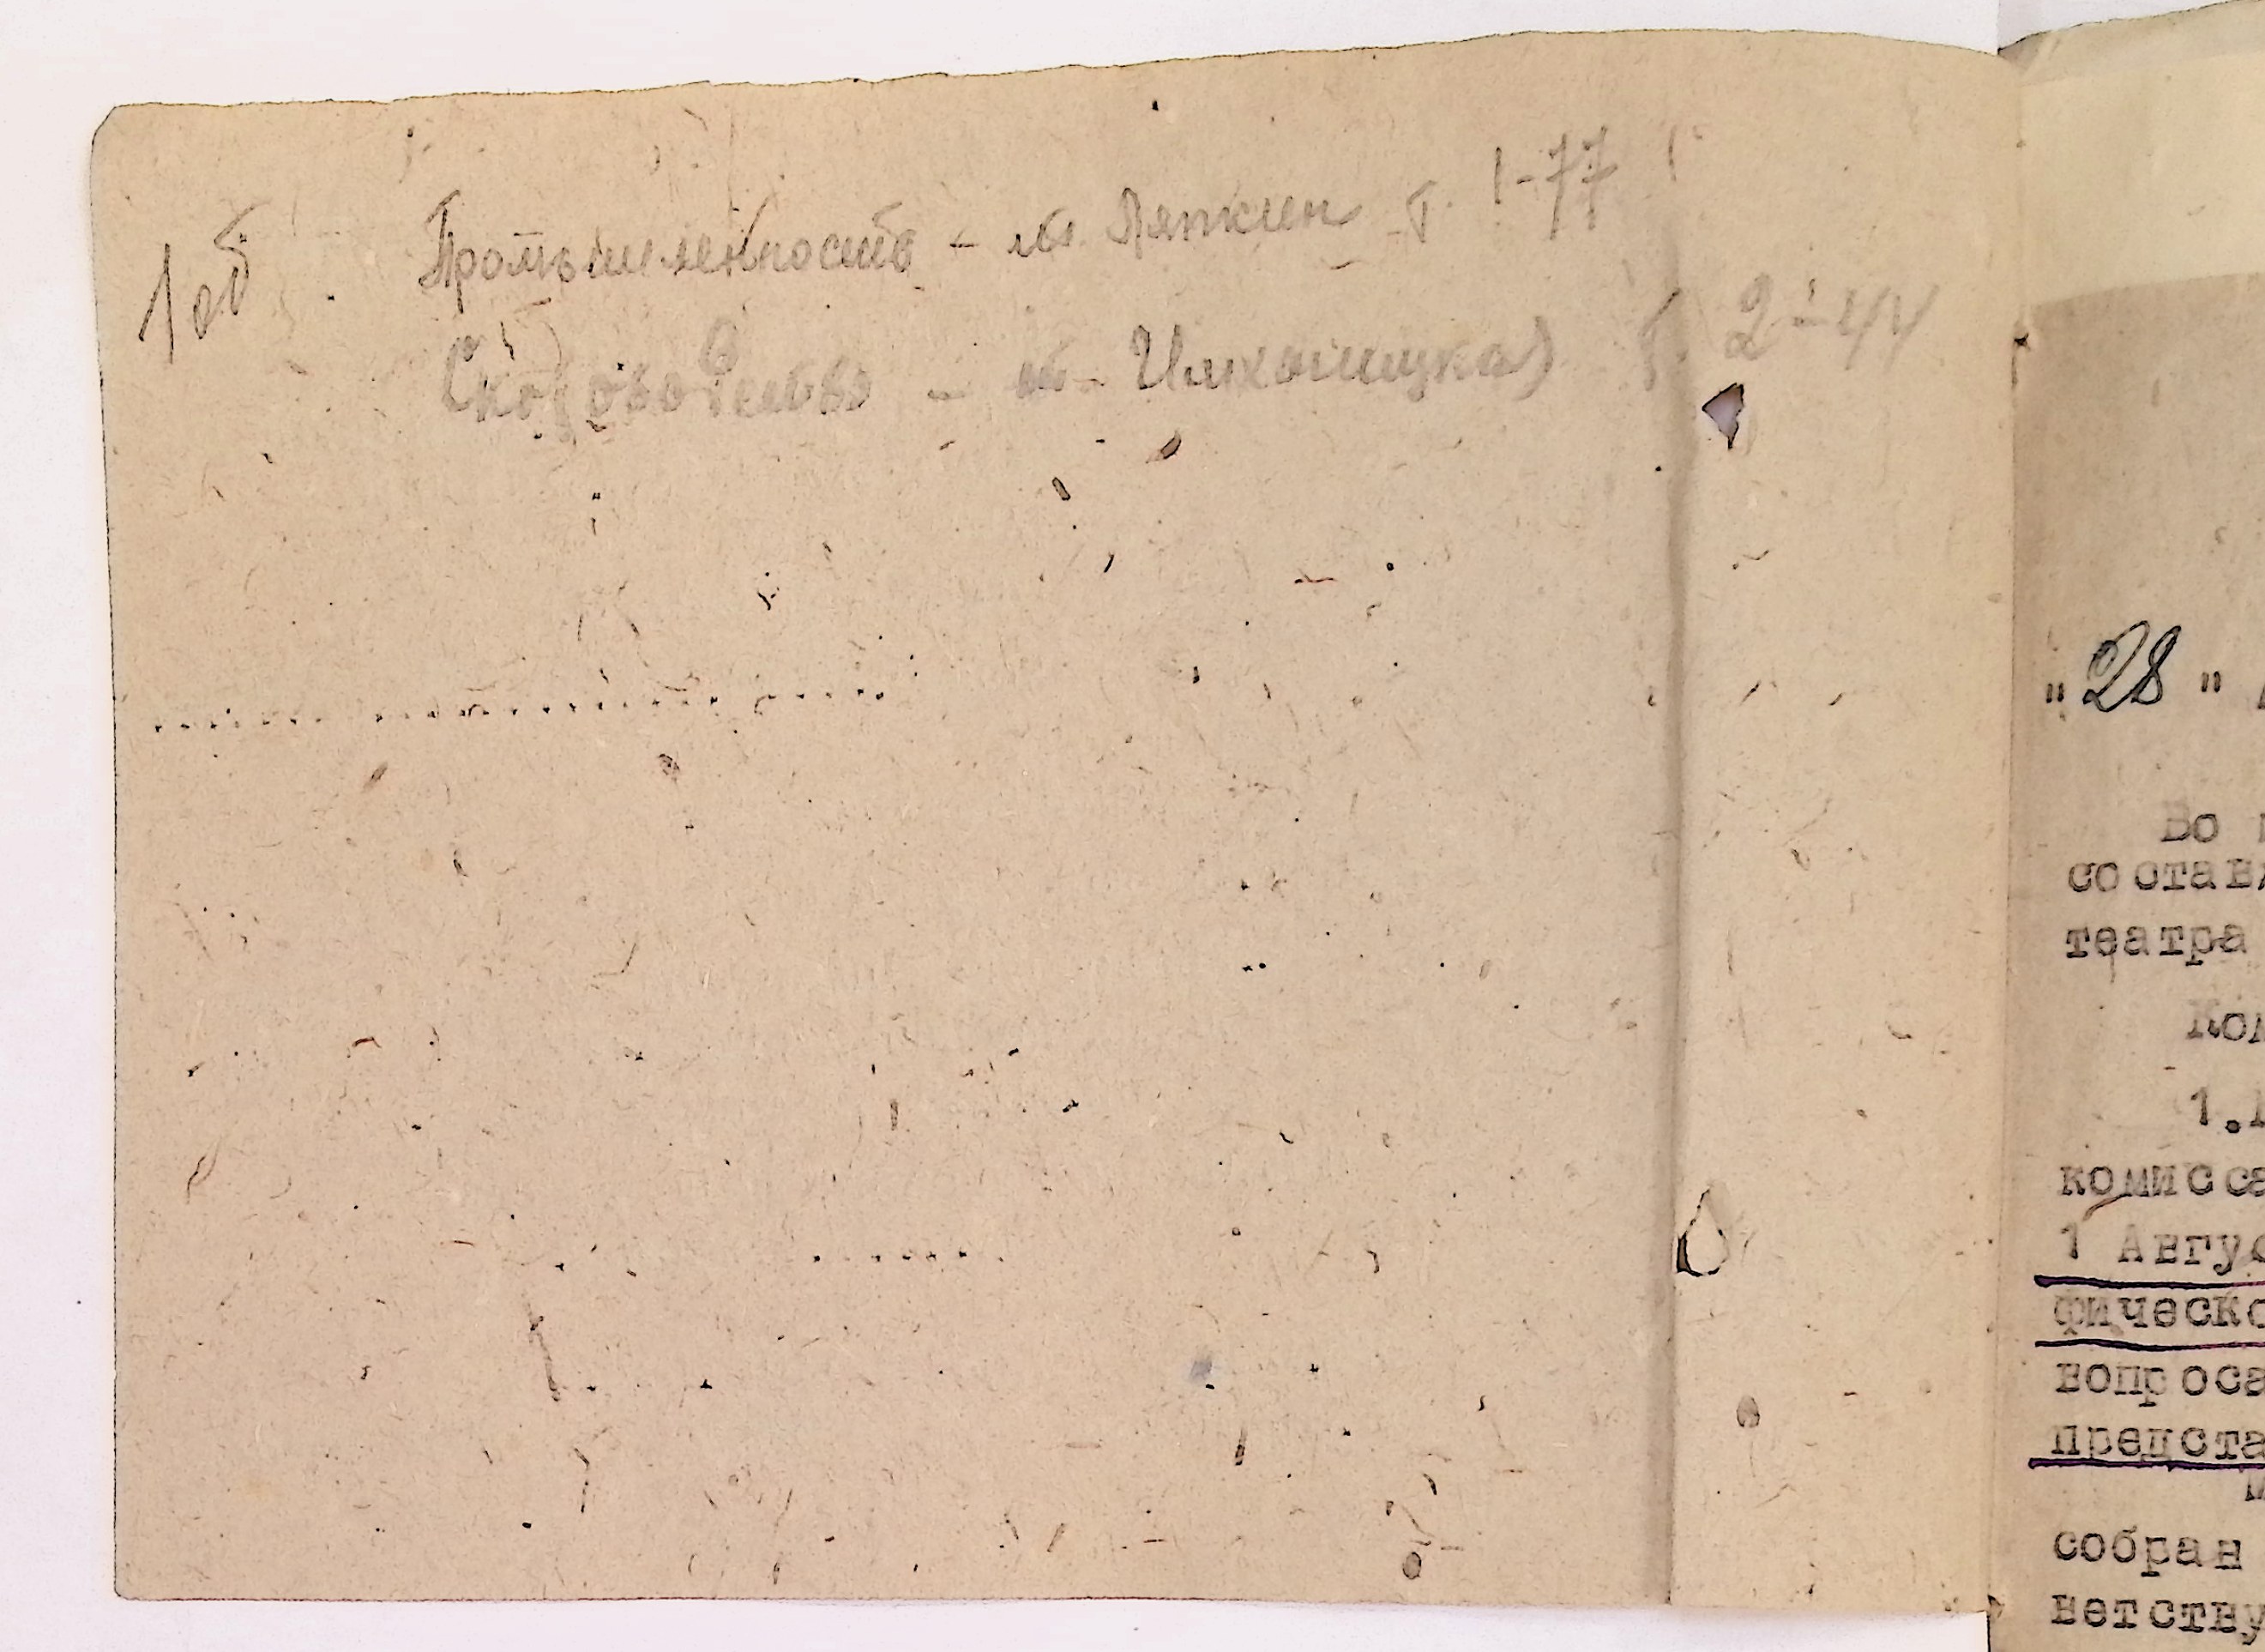 1об
Промышленность - т. Ляпкин Т. 1-77
Скотоводство - т. Т. 2-44
"28"
Во
состав
театра
Ком
1.
комисса
1 Авгус
фическо
вопроса
предста
собран
ветству